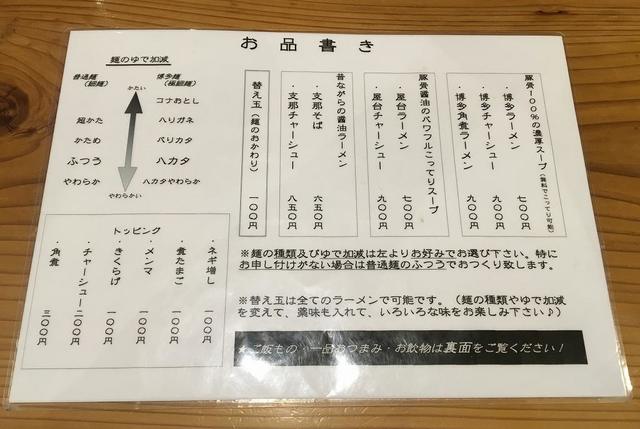 お品書き
豚骨100%の濃厚スープ（無料でこってり可能）
・博多ラーメン 七〇〇円
・博多チャーシュー 九〇〇円
・博多角煮ラーメン 九〇〇円
豚骨醤油のパワフルこってりスープ
・屋台ラーメン 七〇〇円
・屋台チャーシュー 九〇〇円
昔ながらの醤油ラーメン
・支那そば 六五〇円
・支那チャーシュー 八五〇円
替え玉（麺のおかわり） 一〇〇円
麺のゆで加減
普通麺（細麺）
博多麺（極細麺）
かたい
コナおとし
超かた
ハリガネ
かため
バリカタ
ふつう
ハカタ
やわらか
ハカタやわらか
やわらかい
トッピング
・ネギ増し 一〇〇円
・煮たまご 一〇〇円
・メンマ 一〇〇円
・きくらげ 一〇〇円
・チャーシュー 二〇〇円
・角煮 三〇〇円
※麺の種類及びゆで加減は左よりお好みでお選び下さい。特に
お申し付けがない場合は普通麺のふつうでおつくり致します。
※替え玉は全てのラーメンで可能です。（麺の種類やゆで加減
を変えて、薬味も入れて、いろいろな味をお楽しみ下さい♪）
★ご飯もの・一品おつまみ・お飲物は裏面をご覧ください！